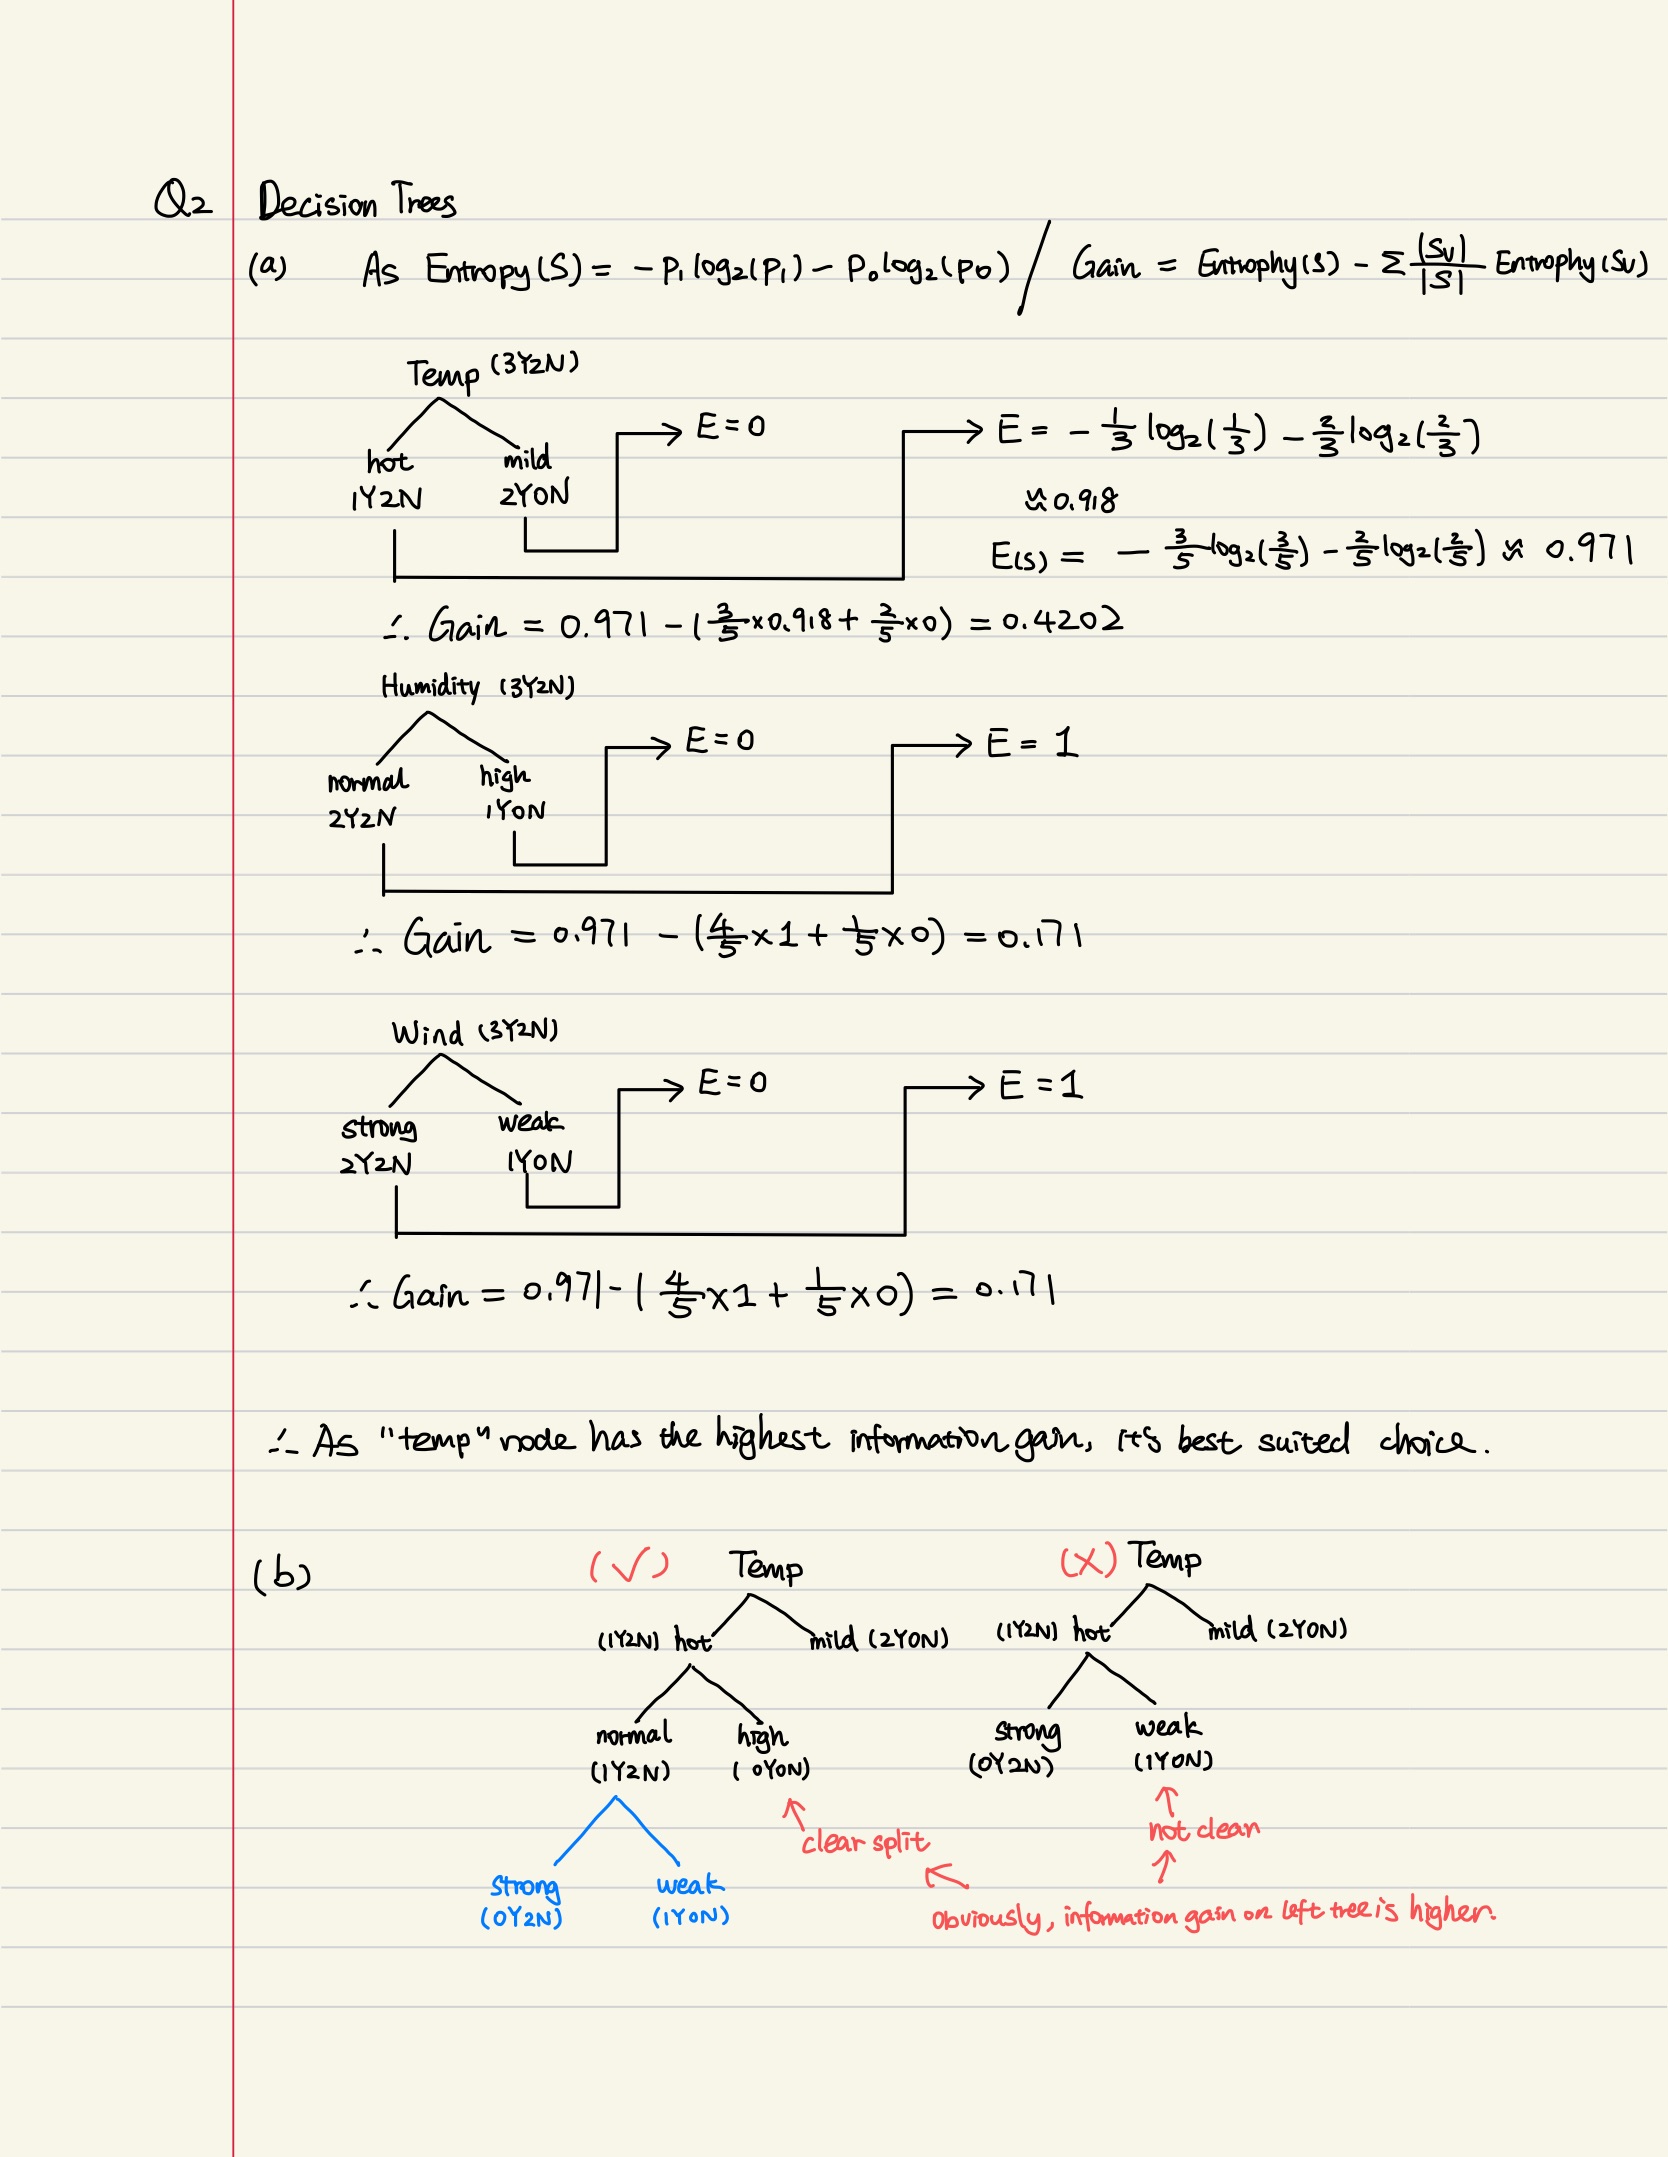 Q2 Decision Trees
(a) As Entropy(S) = -P₁log₂(P₁) - P₀log₂(P₀) / Gain = Entrophy(S) - Σ |Sv|/|S| Entrophy(Sv)
Temp (3Y2N)
hot mild
1Y2N 2Y0N
E=0
E = -1/3 log₂(1/3) - 2/3 log₂(2/3)
≈ 0.918
E(S) = -3/5 log₂(3/5) - 2/5 log₂(2/5) ≈ 0.971
∴ Gain = 0.971 - (3/5 × 0.918 + 2/5 × 0) = 0.4202
Humidity (3Y2N)
normal high
2Y2N 1Y0N
E=0
E = 1
∴ Gain = 0.971 - (4/5 × 1 + 1/5 × 0) = 0.171
Wind (3Y2N)
strong weak
2Y2N 1Y0N
E=0
E = 1
∴ Gain = 0.971 - (4/5 × 1 + 1/5 × 0) = 0.171
∴ As "temp" node has the highest information gain, it's best suited choice.
(b) (✓) Temp
(1Y2N) hot mild (2Y0N)
normal high
(1Y2N) (0Y0N)
clear split
strong weak
(0Y2N) (1Y0N)
(X) Temp
(1Y2N) hot mild (2Y0N)
strong weak
(0Y2N) (1Y0N)
not clean
Obviously, information gain on left tree is higher.